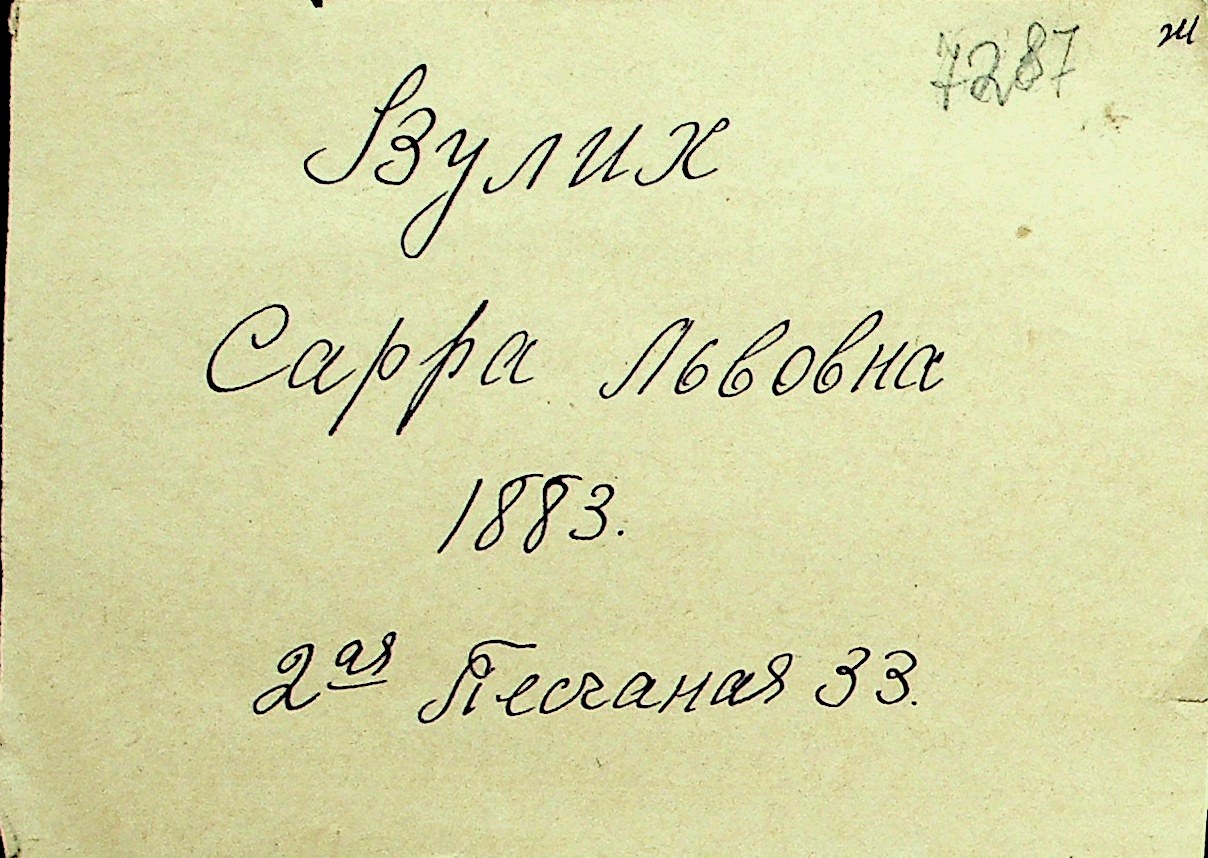 7287 ж
Вулих
Сарра Львовна
1883.
2ая Песчаная 33.